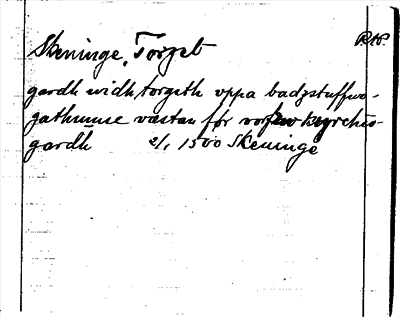 Skeninge, Torget RAP.
gardh widh torgith vppa badzstuffwo-
gathunne væstan før vorfrw kyrchio-
gardh 2/1 1500 Skeninge